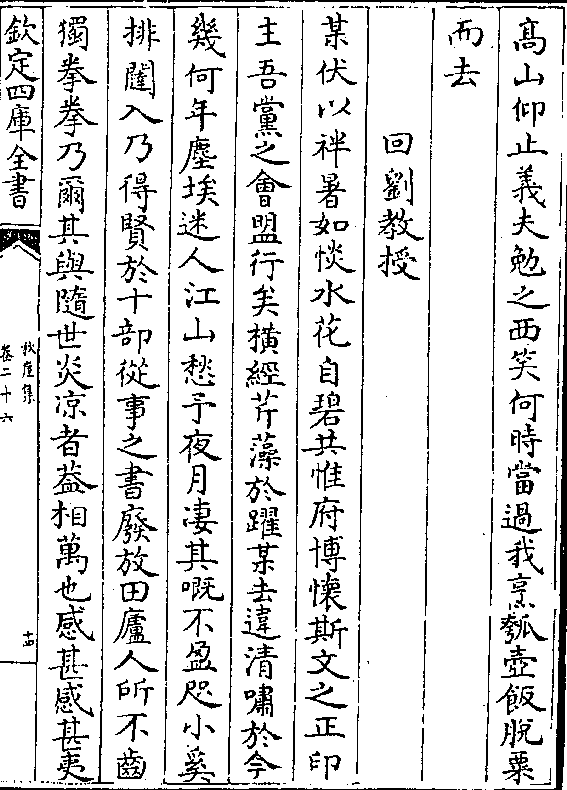 高山仰止義夫勉之西笑何時當過我烹瓠壺飯脫粟
而去
回劉教授
某伏以袢暑如惔水花自碧共惟府博懷斯文之正印
主吾黨之會盟行矣橫經芹藻於躍某去違清嘯於今
幾何年塵埃迷人江山愁予夜月凄其嘅不盈咫小奚
排闥入乃得賢於十部從事之書廢放田廬人所不齒
獨拳拳乃爾其與隨世炎凉者葢相萬也感甚感甚夷
欽定四庫全書
秋崖集
卷二十六
十四